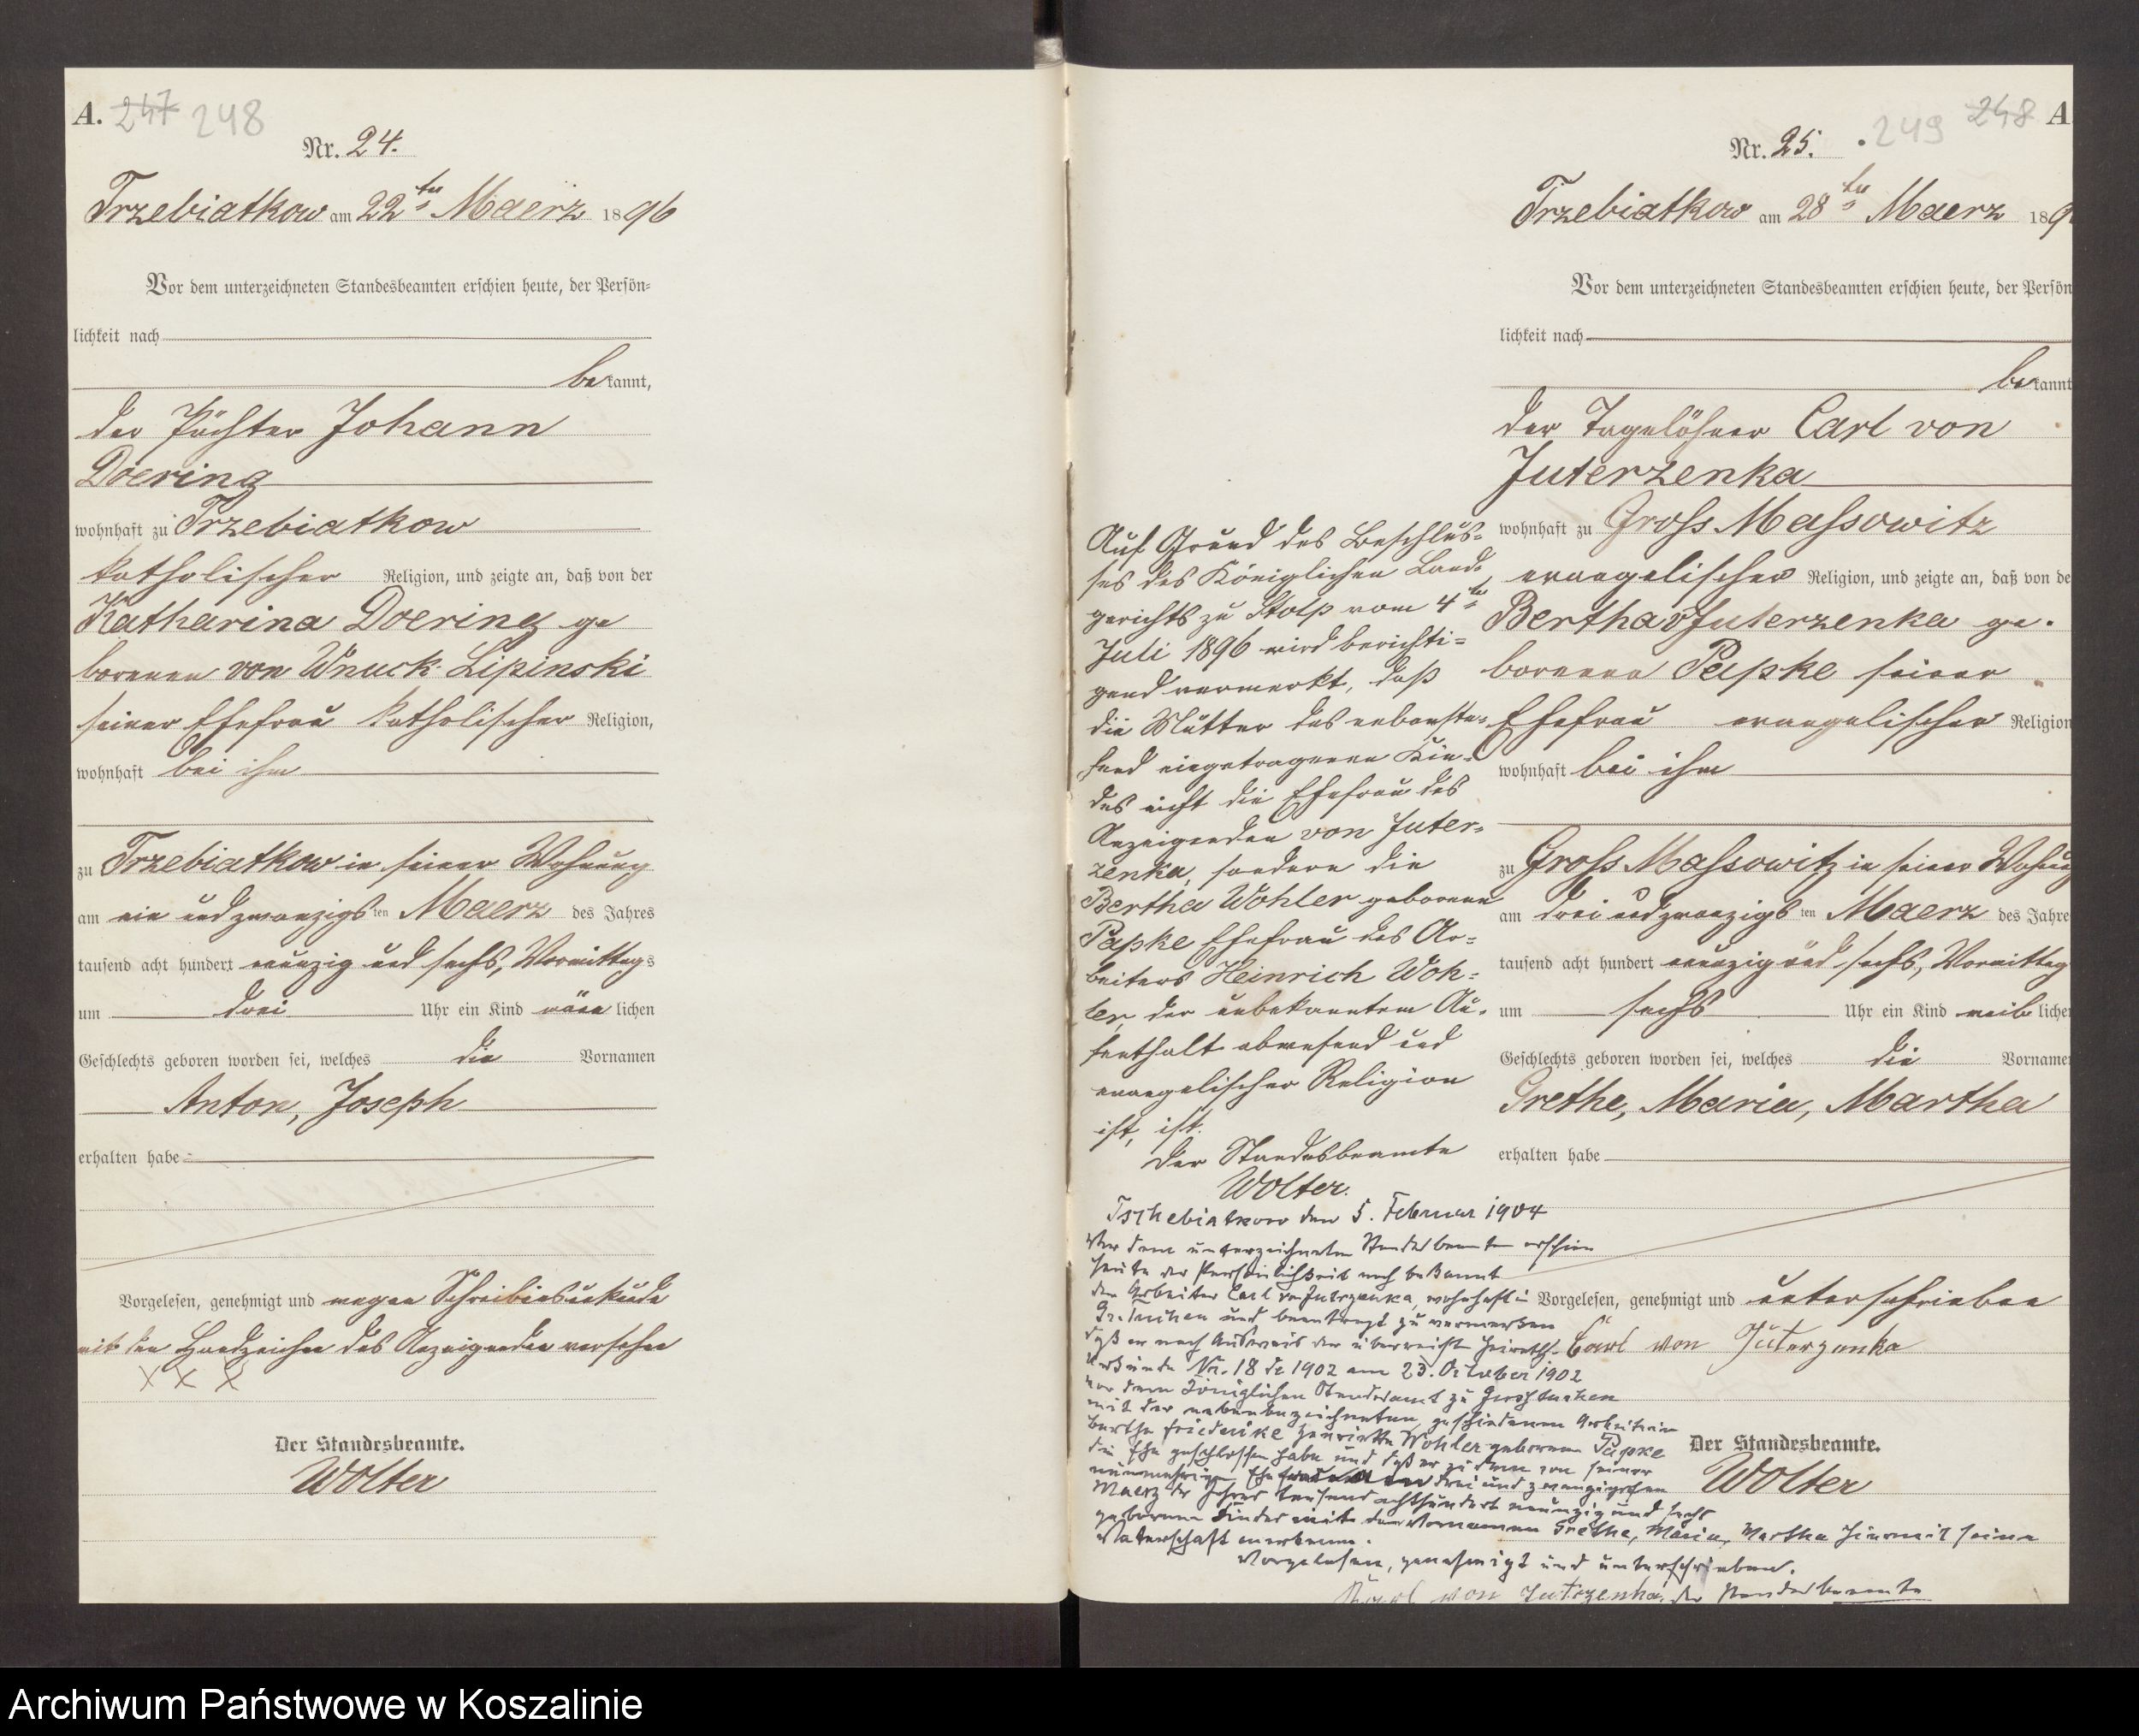 A. 247 248
Nr. 24.
Trzebiatkow am 22ten Maerz 1896
Vor dem unterzeichneten Standesbeamten erschien heute, der Persön=
lichkeit nach
bekannt,
der Pächter Johann
Doering
wohnhaft zu Trzebiatkow
katholischer Religion, und zeigte an, daß von der
Katharina Doering ge
borenen von Wnuck-Lipinski
seiner Ehefrau katholischer Religion,
wohnhaft bei ihm
zu Trzebiatkow in seiner Wohnung
am ein und zwanzigsten Maerz des Jahres
tausend acht hundert neunzig und sechs, Vormittags
um drei Uhr ein Kind männlichen
Geschlechts geboren worden sei, welches die Vornamen
Anton, Joseph
erhalten habe
Vorgelesen, genehmigt und wegen Schreibensunkunde
mit den Handzeichen des Anzeigenden versehen
X X X
Der Standesbeamte.
Wolter
249 248 A
Nr. 25.
Trzebiatkow am 28ten Maerz 189
Vor dem unterzeichneten Standesbeamten erschien heute, der Persön
lichkeit nach
bekannt
der Tagelöhner Carl von
Juterzenka
wohnhaft zu Gross Massowitz
evangelischer Religion, und zeigte an, daß von de
Bertha v Juterzenka ge-
borenen Papke seiner
Ehefrau evangelischer Religion
wohnhaft bei ihm
zu Gross Massowitz in seiner Wohnung
am drei und zwanzigsten Maerz des Jahre
tausend acht hundert neunzig und sechs, Vormittag
um sechs Uhr ein Kind weiblichen
Geschlechts geboren worden sei, welches die Vornamen
Grethe, Maria, Martha
erhalten habe
Vorgelesen, genehmigt und unterschrieben
Carl von Juterzenka
Der Standesbeamte.
Wolter
Auf Grund des Beschlus=
ses des Königlichen Land=
gerichts zu Stolp vom 4ten
Juli 1896 wird berichti=
gend vermerkt, daß
die Mutter des nebenste=
hend eingetragenen Kin=
des nicht die Ehefrau des
Anzeigenden von Juter=
zenka, sondern die
Bertha Wohler geborene
Papke Ehefrau des Ar=
beiters Heinrich Woh=
ler, der unbekannten Au=
fenthalts abwesend und
evangelischer Religion
ist, ist.
Der Standesbeamte
Wolter.
Tschebiatkow den 5. Februar 1904
Vor dem unterzeichneten Standesbeamten erschien
heute der Persönlichkeit nach bekannt
der Arbeiter Carl von Juterzenka, wohnhaft in
und beantragt zu vermerken
daß er nach Ausweis der überreichten Heiraths-
urkunde Nr. 18 de 1902 am 23. October 1902
vor dem Königlichen Standesamt zu Gross tuchen
mit der nebenbezeichneten geschiedenen Arbeiterin
Bertha Friederike Henriette Wohler geborenen Papke
die Ehe geschlossen habe und daß er zu dem von seiner
nunmehrigen Ehefrau am drei und zwanzigsten
Maerz des Jahres tausend achthundert neunzig und sechs
geborenen Kindes mit den Vornamen Grethe, Maria, Martha hiermit seine
Vaterschaft anerkenne.
Vorgelesen, genehmigt und unterschrieben.
von Juterzenka. der Standesbeamte
Archiwum Państwowe w Koszalinie